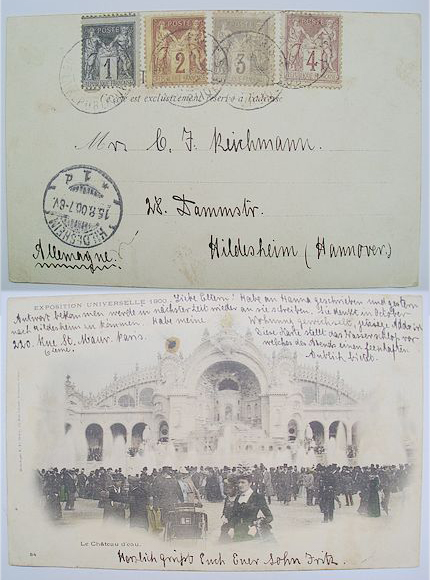 POSTE
1
POSTE
2
POSTE
3
POSTE
4
Côté est exclusivement réservé à l'adresse
Mr C. F. Reichmann.
28. Dammstr.
Hildesheim (Hannover)
Allemagne.
HILDESHEIM
15.8.00.7-8V.
* 1 d
EXPOSITION UNIVERSELLE 1900
Liebe Eltern! Habe an Hanna geschrieben und gestern
Antwort bekommen werde in nächster Zeit wieder an sie schreiben. Sie denkt im October
nach Hildesheim zu kommen. Habe meine Wohnung gewechselt,
220. Rue St. Maur. Paris.
6ième.
Diese Karte stellt das Wasserschloss vor
welches des Abends einen feenhaften
Anblick bietet.
Le Château d'eau.
Herzlich grüßt Euch Euer Sohn Fritz.